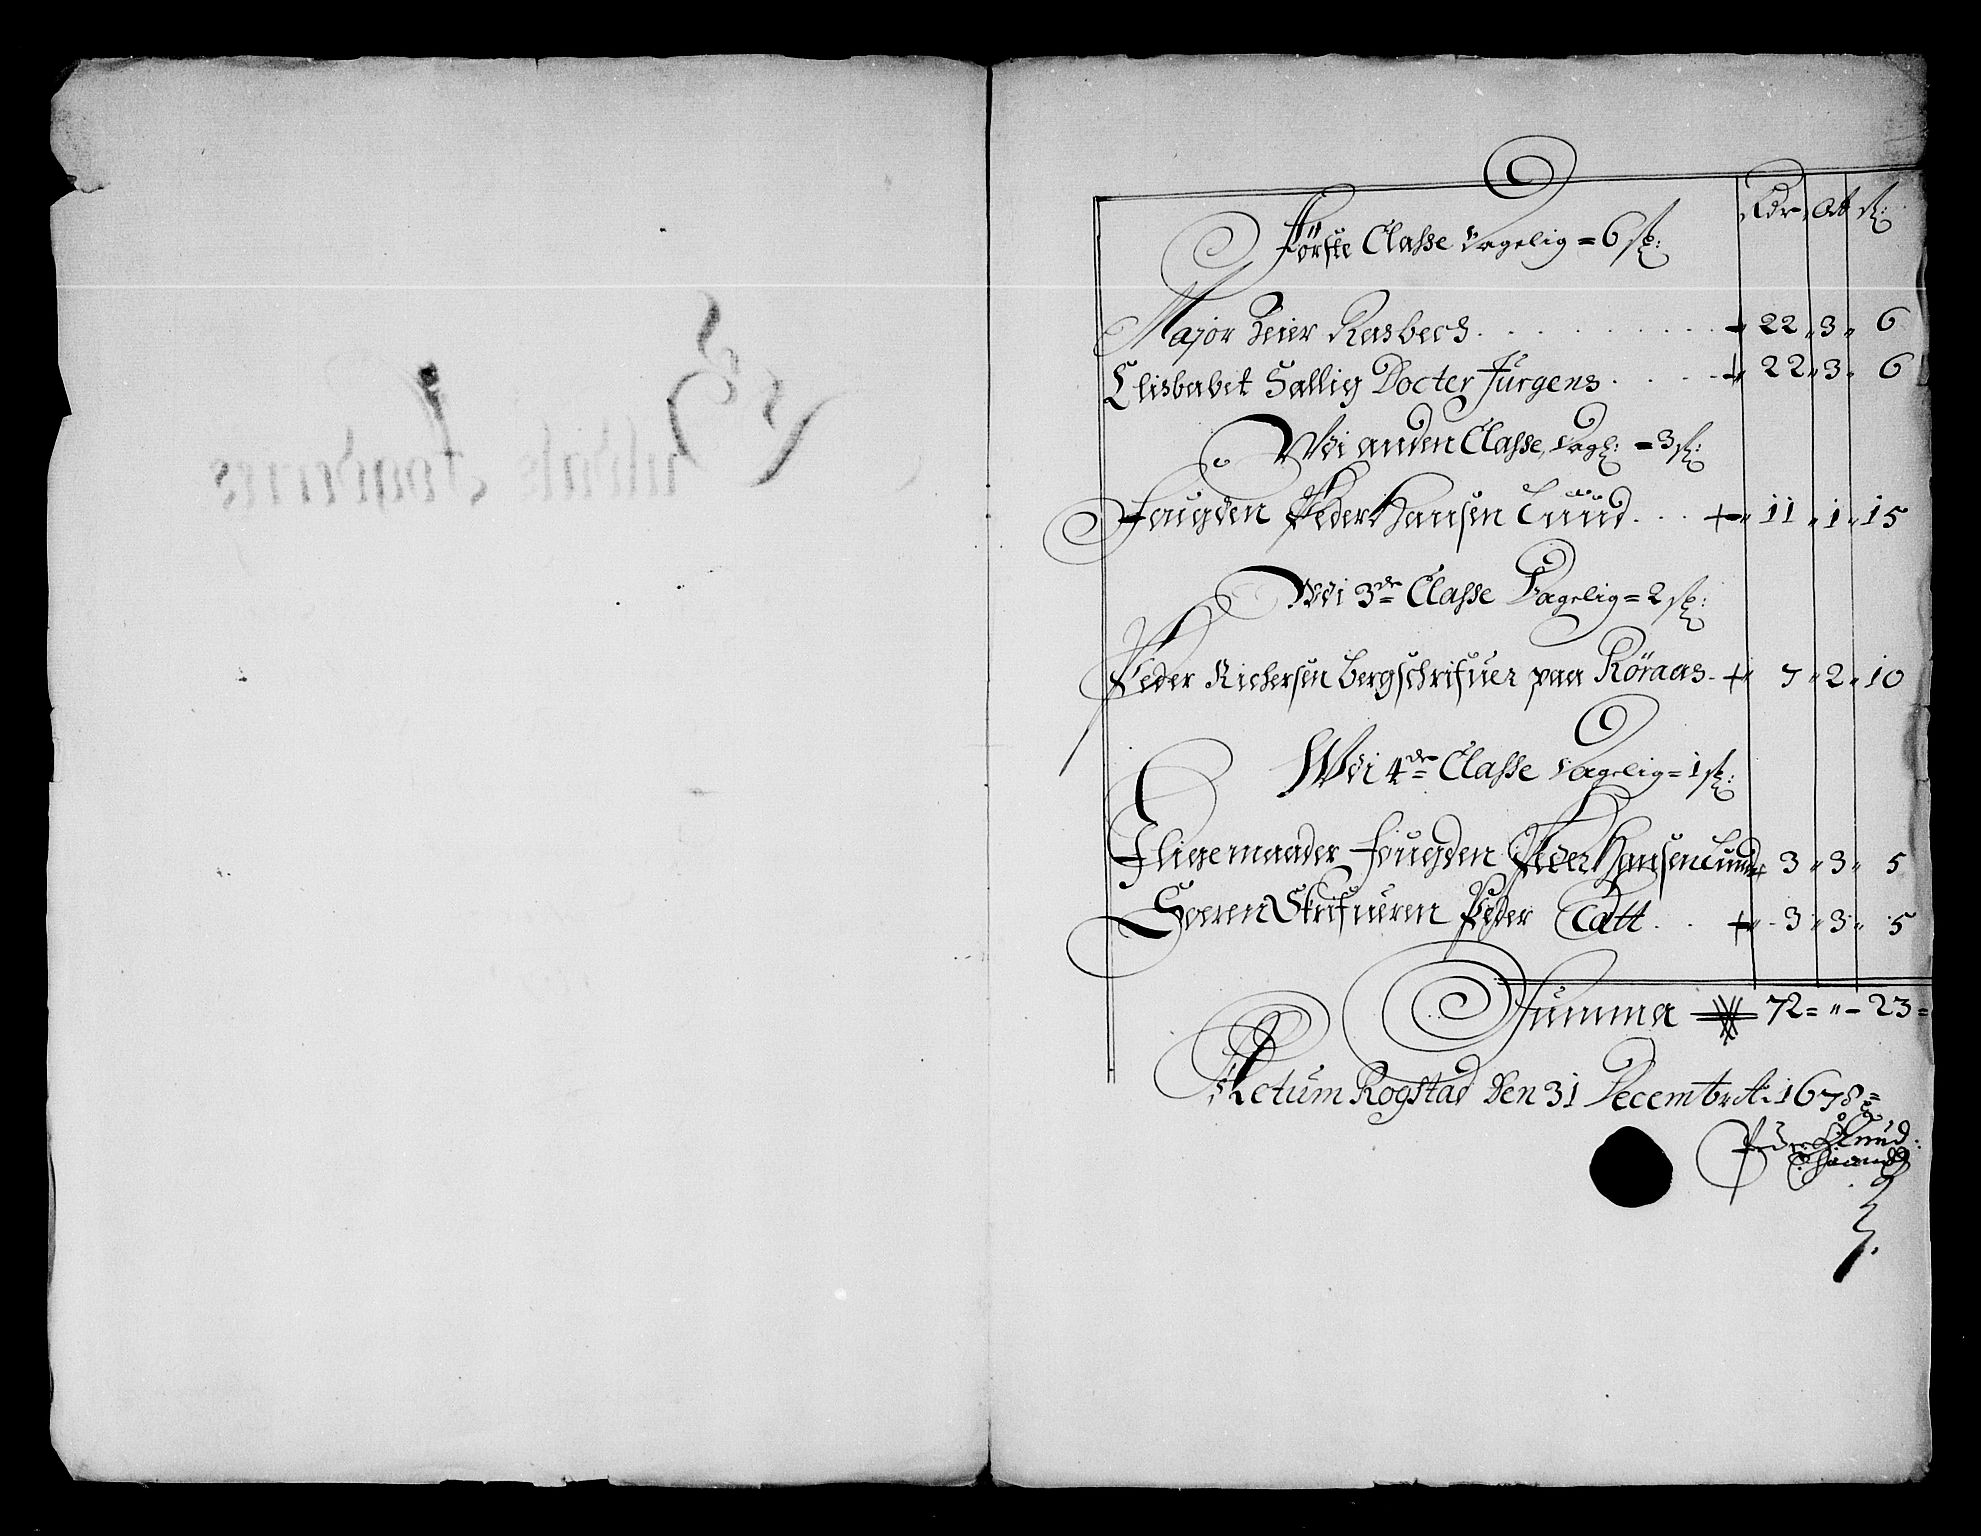 Rdr. Ort ß:
Förste Classe Dagelig = 6 ß:
Major Zeier Reisbech . . . . . . 22 " 3 " 6
Elisbabet Sallig Docter Jürgens . . . . 22 " 3 " 6
Wdi anden Classe, dagl: = 3 ß:
Fougden Peder Hansen Lund . . . 11 " 1 " 15
Wdi 3de Classe Dagelig = 2 ß:
Peder Richersen Bergschrifuer paa Röraas - 7 " 2 " 10
Wdi 4de Classe Dagelig = 1 ß:
Ilige maader Fougden Peder Hansen Lund 3 " 3 " 5
Soeren Skrifueren Peder Catt . . 3 " 3 " 5
Summa 72 = " - 23 =
Actum Rogstad den 31 Decembr A: 1678 =